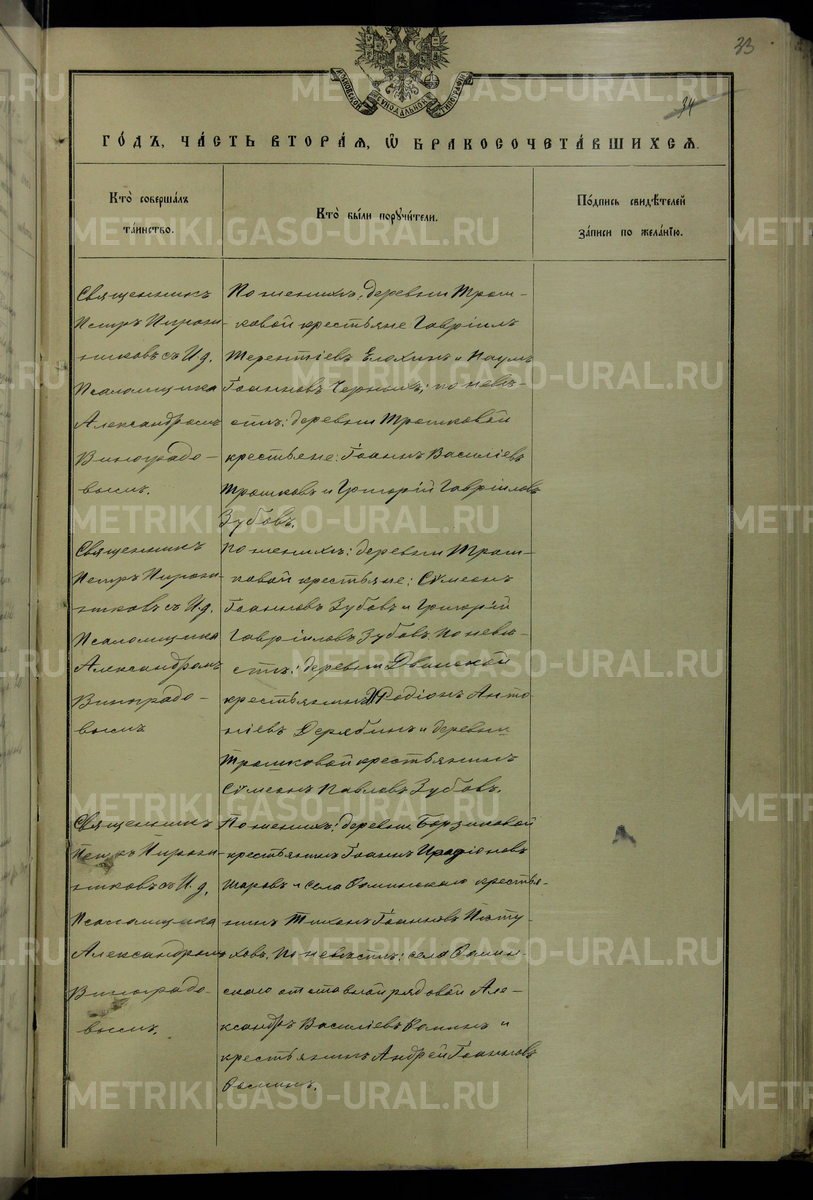 33
34
МОСКОВСКОЙ СѴНОДАЛЬНОЙ ТИПОГРАФІИ
ГО́ДЪ, ЧА́СТЬ ВТОРА́Я, Ѡ БРАКОСОЧЕТА́ВШИХСЯ.
Кто̀ соверша́лъ
та́инство.
Кто̀ бы́ли поручи́тели.
По́дпись свидѣ́телей
за́писи по жела́нїю.
Священникъ
Петръ Пирож-
никовъ съ И. д.
Псаломщика
Александромъ
Виноградо-
вымъ.
По женихѣ: деревни Трош-
ковой крестьяне Гавріилъ
Терентіевъ Елохинъ и Наумъ
Іоанновъ Черныхъ; по невѣ-
стѣ: деревни Трошковой
крестьяне: Іоаннъ Василіевъ
Трошковъ и Григорій Гавріиловъ
Зубовъ.
Священникъ
Петръ Пирож-
никовъ съ И. д.
Псаломщика
Александромъ
Виноградо-
вымъ
По женихѣ: деревни Трош-
ковой крестьяне: Сѵмеонъ
Іоанновъ Зубовъ и Григорій
Гавріиловъ Зубовъ по невѣ-
стѣ: деревни Двинской
крестьянинъ Родіонъ Анто-
ніевъ Дерябинъ и деревни
Трошковой крестьянинъ
Сѵмеонъ Павловъ Зубовъ.
Священникъ
Петръ Пирож-
никовъ съ И. д.
Псаломщика
Александромъ
Виноградо-
вымъ.
По женихѣ: деревни Борзиковой
крестьянинъ Іоаннъ
Шаровъ и села Фоминскаго крестья-
нинъ Тихонъ Іоанновъ Пѣту-
ховъ. По невѣстѣ: села Фомин-
скаго отставной рядовой Але-
ксандръ Василіевъ Фоминъ и
крестьянинъ Андрей Іоанновъ
Фоминъ.
METRIKI.GASO-URAL.RU